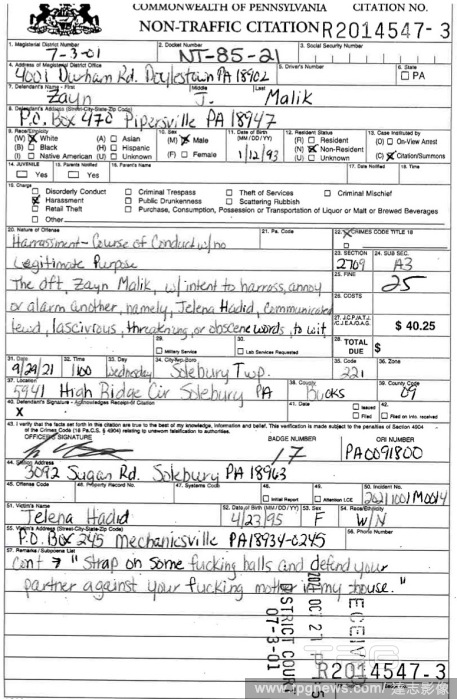 COMMONWEALTH OF PENNSYLVANIA CITATION NO.
NON-TRAFFIC CITATION R2014547-3
1. Magisterial District Number 2. Docket Number 3. Social Security Number
7-3-01 NT-85-21
4. Address of Magisterial District Office 5. Driver's Number 6. State
4001 Durham Rd. Doylestown PA 18902 PA
7. Defendant's Name - First Middle Last
Zayn J. Malik
8. Defendant's Address (Street-City-State-Zip Code)
P.O. Box 470 Pipersville PA 18947
9. Race/Ethnicity 10. Sex 11. Date of Birth (MM/DD/YY) 12. Resident Status 13. Case Instituted by
(W) White (A) Asian (M) Male (R) Resident (O) On-View Arrest
(B) Black (H) Hispanic (F) Female 1/12/93 (N) Non-Resident (C) Citation/Summons
(I) Native American (U) Unknown (U) Unknown
14. JUVENILE 15. Parents Notified 16. Parent's Name 17. Date Notified 18. Time
Yes Yes
19. Charge
Disorderly Conduct Criminal Trespass Theft of Services Criminal Mischief
Harassment Public Drunkenness Scattering Rubbish
Retail Theft Purchase, Consumption, Possession or Transportation of Liquor or Malt or Brewed Beverages
Other
20. Nature of Offense 21. Pa. Code 22. CRIMES CODE TITLE 18
Harrassment - Course of Conduct w/no 23. SECTION 24. SUB SEC.
Legitimate Purpose 2709 A3
The dft, Zayn Malik, w/ intent to harross, annoy 25. FINE 25
or alarm another, namely, Jelena Hadid, communicated 26. COSTS
lewd, lascivious, threatening, or obscene words, to wit 27. J.C.P./A.T.J. C.J.E.A./O.A.G. $ 40.25
28. TOTAL DUE $
29. Military Service 30. Lab Services Requested
31. Date 32. Time 33. Day 34. City-Twp-Boro 35. Code 36. Zone
9/29/21 1100 Wednesday Solebury Twp. 221
37. Location 38. County 39. County Code
5941 High Ridge Cir Solebury PA Bucks 09
40. Defendant's Signature - Acknowledges Receipt of Citation 41. Date 42. Issued
X Filed Filed on info. received
43. I verify that the facts set forth in this citation are true to the best of my knowledge, information and belief. This verification is made subject to the penalties of Section 4904
of the Crimes Code (18 Pa.C.S. § 4904) relating to unsworn falsification to authorities.
OFFICER'S SIGNATURE BADGE NUMBER ORI NUMBER
17 PA0091800
44. Station Address
3092 Sugan Rd. Solebury PA 18963
45. Offense Code 46. Property Record No. 47. Systems Code 48. 49. 50. Incident No.
Initial Report Attention LCE 20211001M0014
51. Victim's Name 52. Date of Birth (MM/DD/YY) 53. Sex 54. Race/Ethnicity
Jelena Hadid 4/23/95 F W/N
55. Victim's Address (Street-City-State-Zip Code) 56. Phone Number
P.O. Box 245 Mechanicsville PA 18934-0245
57. Remarks/Subpoena List
Con't → "Strap on some fucking balls and defend your
partner against your fucking mother in my house."
DISTRICT COURT
07-3-01
2021 OCT 21 P
R2014547-3
www.rpgnews.com/達志影像